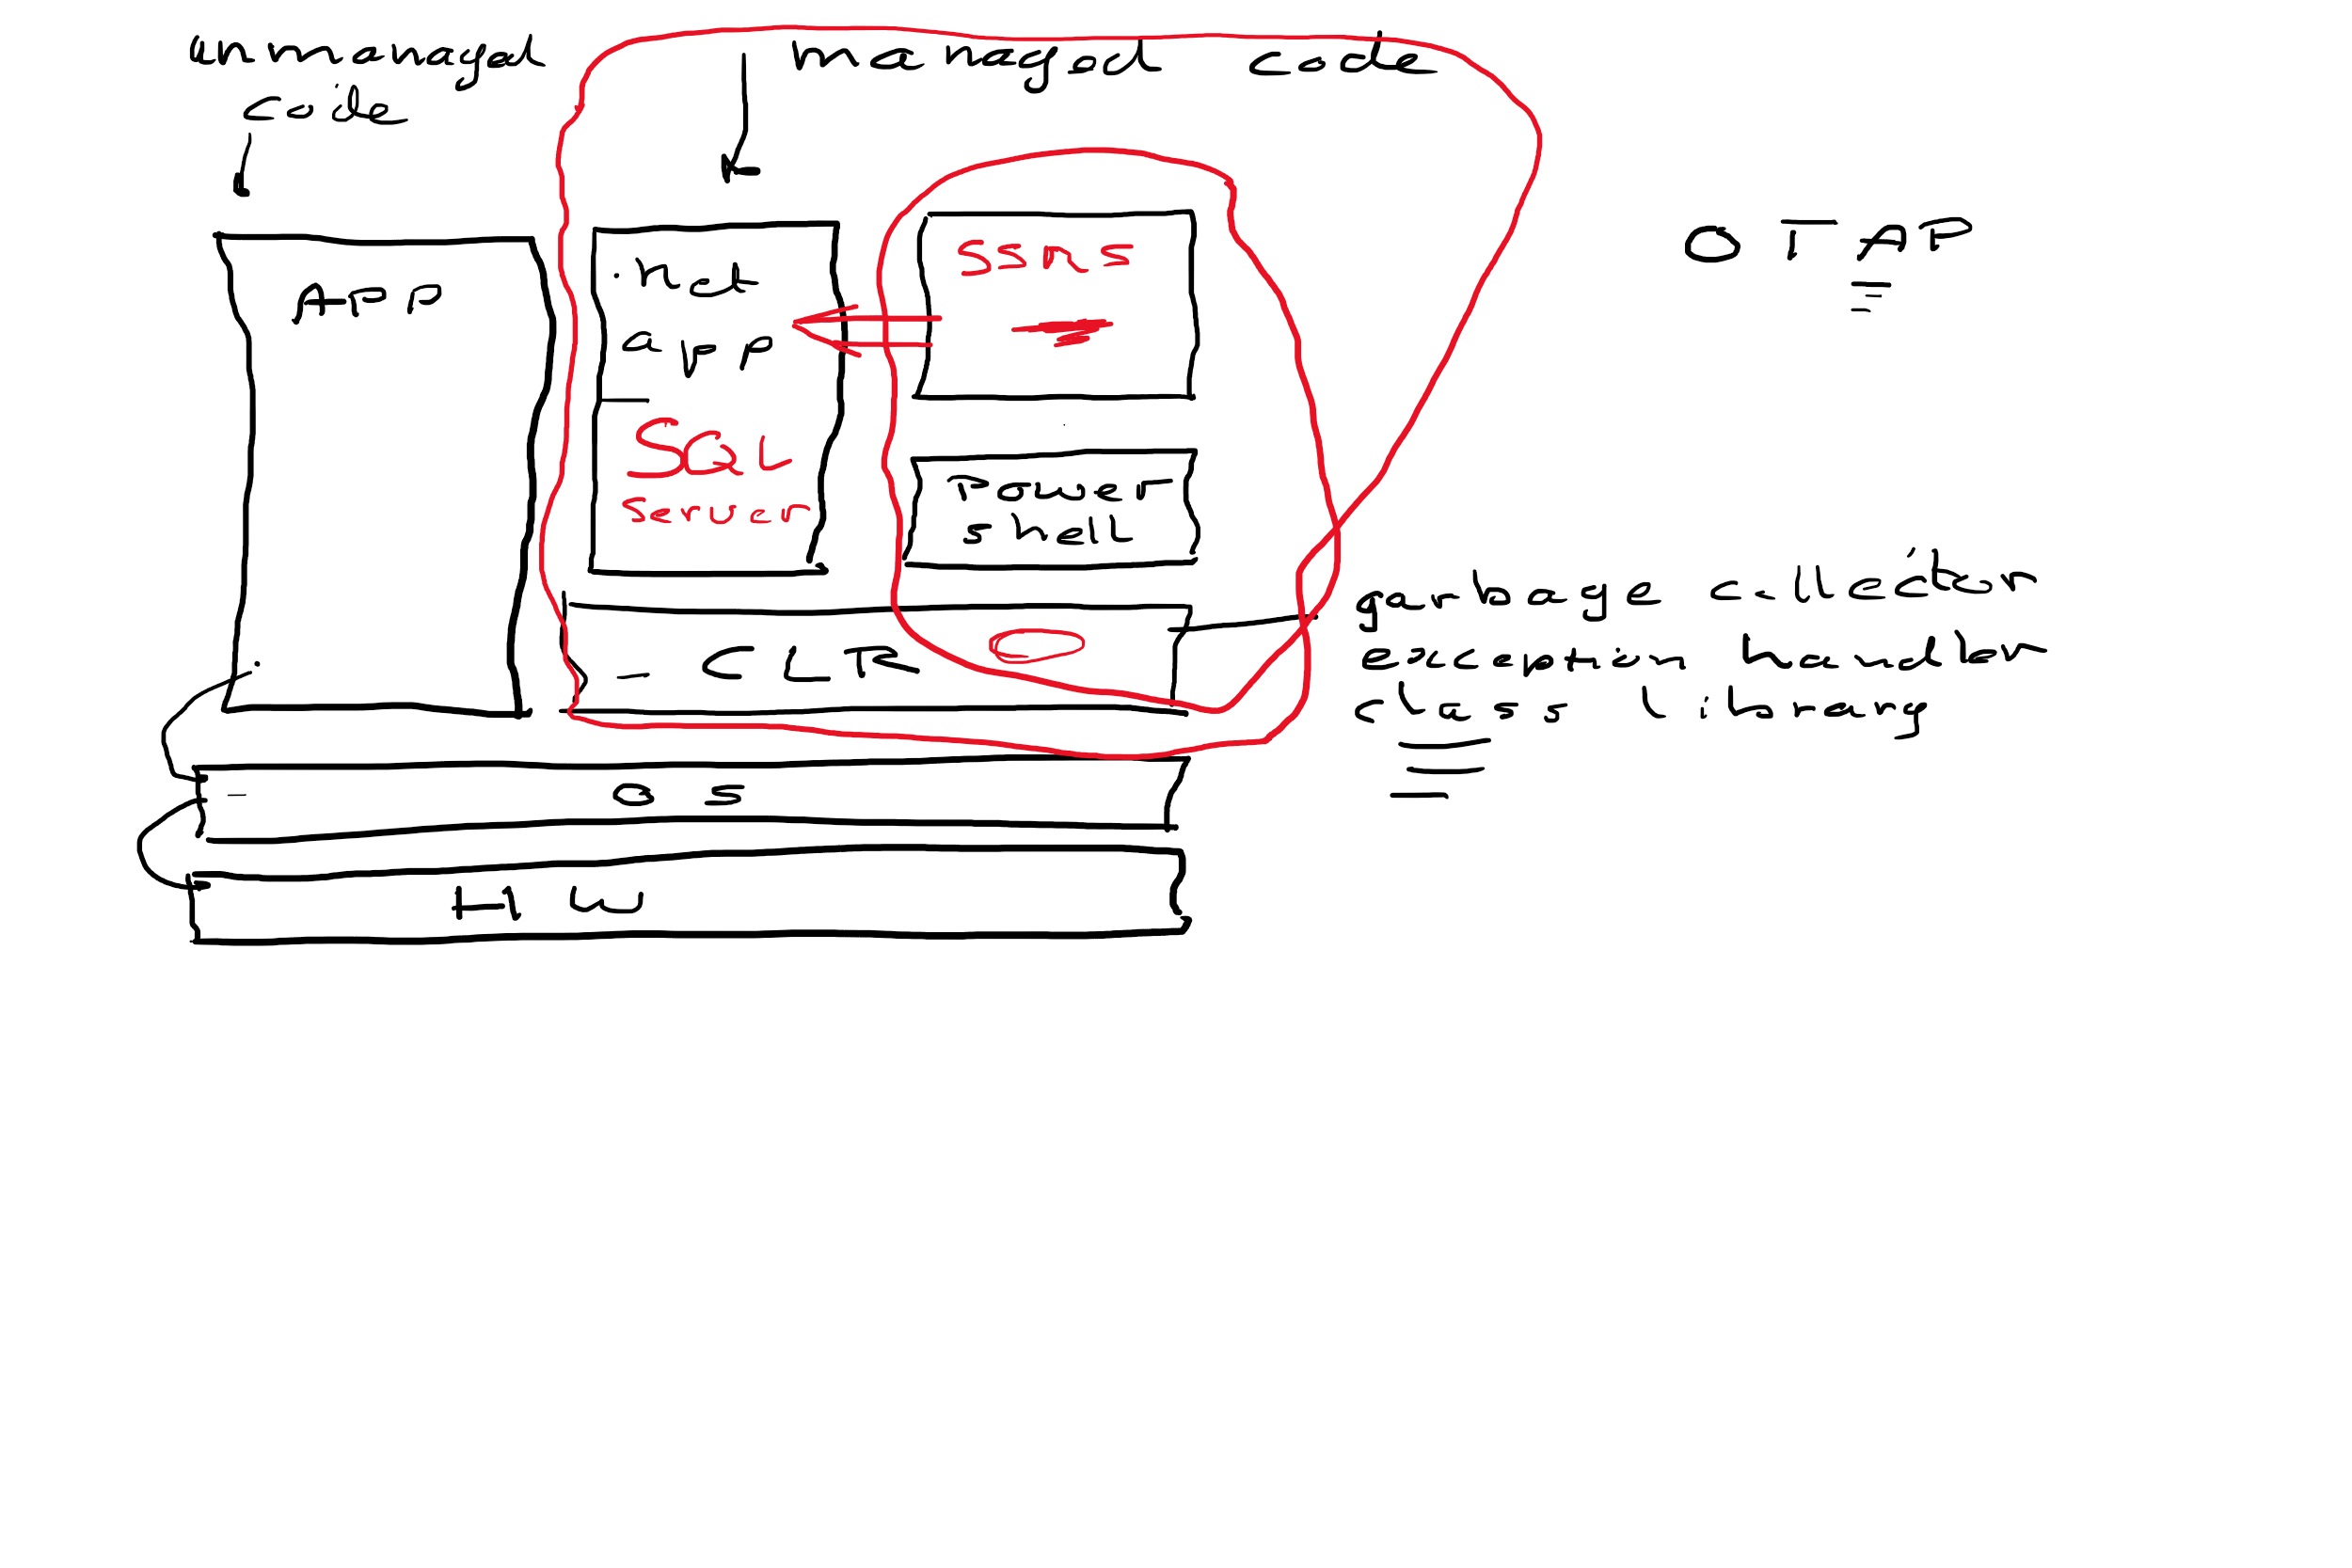 unmanaged
code
managed code
APP
.Net
app
SQL
server
Power
shell
CLR
OS
HW
OTAP
garbage collector
exception handler
class library